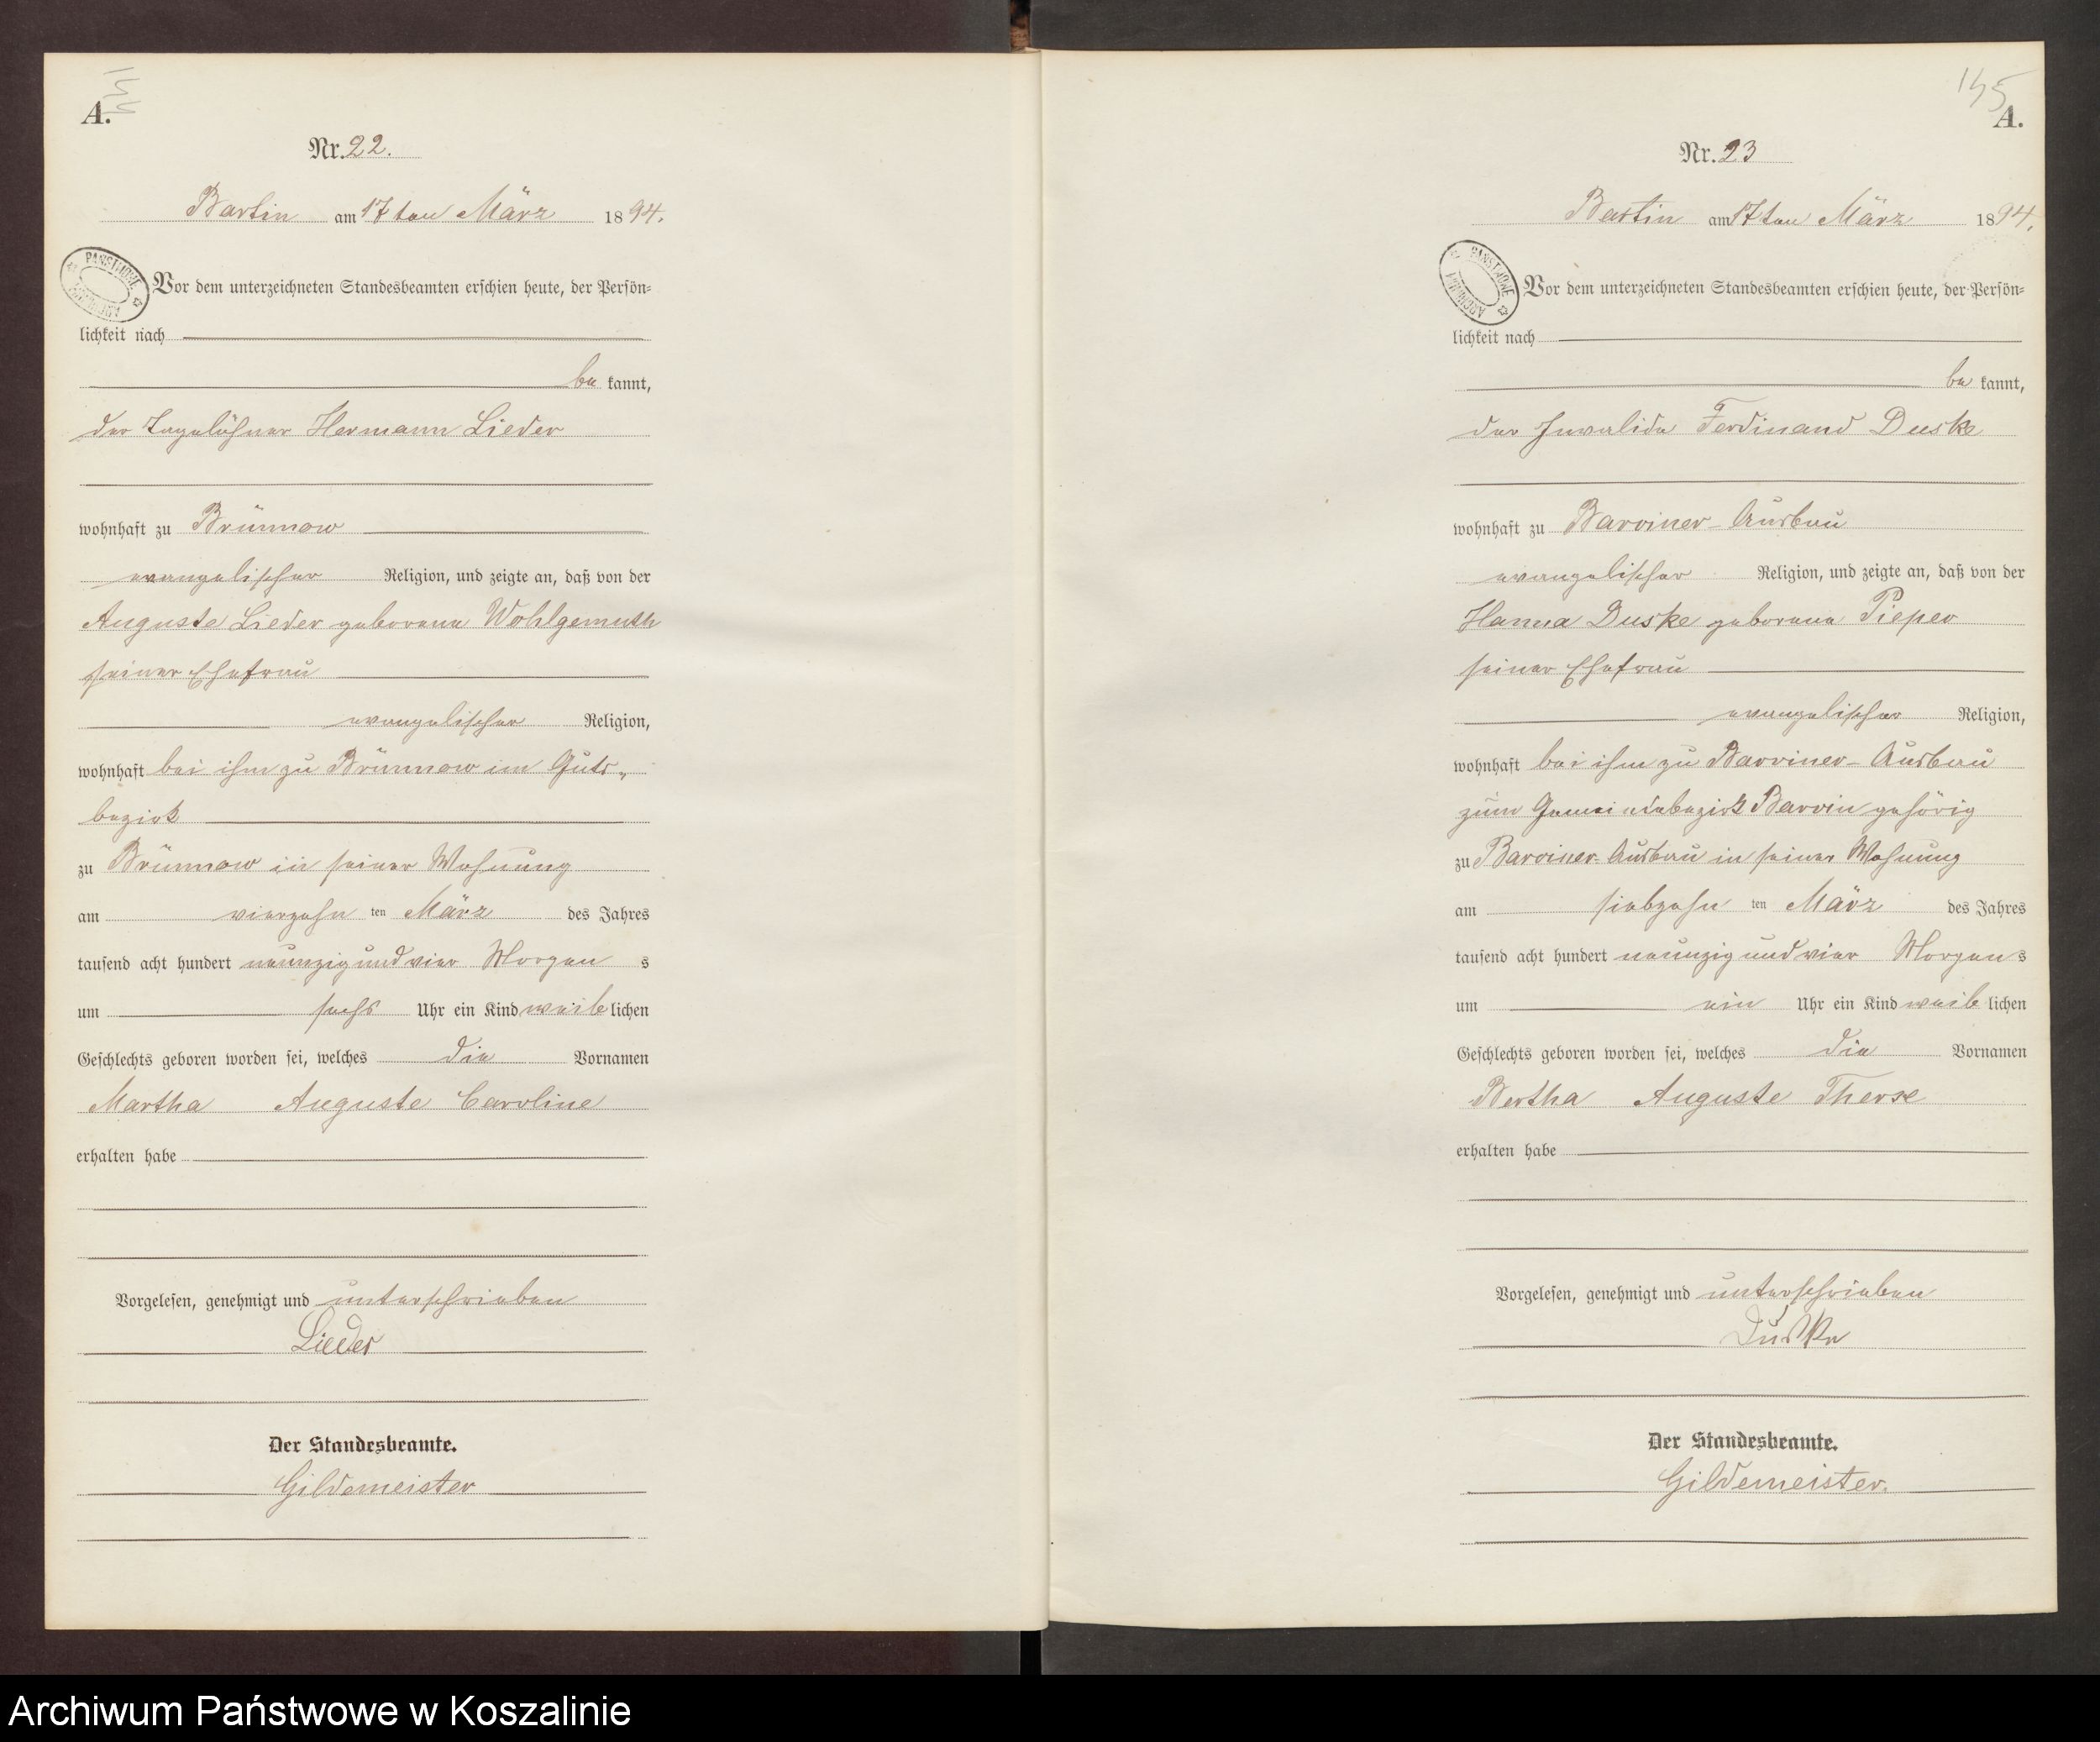 A.
Nr. 22.
Bartin am 17ten März 1894.
PANSTWOWE
ARCHIWUM
Vor dem unterzeichneten Standesbeamten erschien heute, der Persön=
lichkeit nach
be kannt,
der Tagelöhner Hermann Lieder
wohnhaft zu Brünnow
evangelischer Religion, und zeigte an, daß von der
Auguste Lieder geborene Wohlgemuth
seiner Ehefrau
evangelischer Religion,
wohnhaft bei ihm zu Brünnow im Guts„
bezirk
zu Brünnow in seiner Wohnung
am vierzehn ten März des Jahres
tausend acht hundert neunzig und vier Morgen s
um sechs Uhr ein Kind weib lichen
Geschlechts geboren worden sei, welches die Vornamen
Martha Auguste Caroline
erhalten habe
Vorgelesen, genehmigt und unterschrieben
Lieder
Der Standesbeamte.
Gildemeister
145
A.
Nr. 23
Bartin am 17ten März 1894.
PANSTWOWE
ARCHIWUM
Vor dem unterzeichneten Standesbeamten erschien heute, der Persön=
lichkeit nach
be kannt,
der Invalide Ferdinand Duske
wohnhaft zu Barviner-Ausbau
evangelischer Religion, und zeigte an, daß von der
Hanna Duske geborene Pieper
seiner Ehefrau
evangelischer Religion,
wohnhaft bei ihm zu Barviner-Ausbau
zum Gemeindebezirk Barvin gehörig
zu Barviner-Ausbau in seiner Wohnung
am siebzehn ten März des Jahres
tausend acht hundert neunzig und vier Morgen s
um ein Uhr ein Kind weib lichen
Geschlechts geboren worden sei, welches die Vornamen
Bertha Auguste Therse
erhalten habe
Vorgelesen, genehmigt und unterschrieben
Duske
Der Standesbeamte.
Gildemeister.
Archiwum Państwowe w Koszalinie